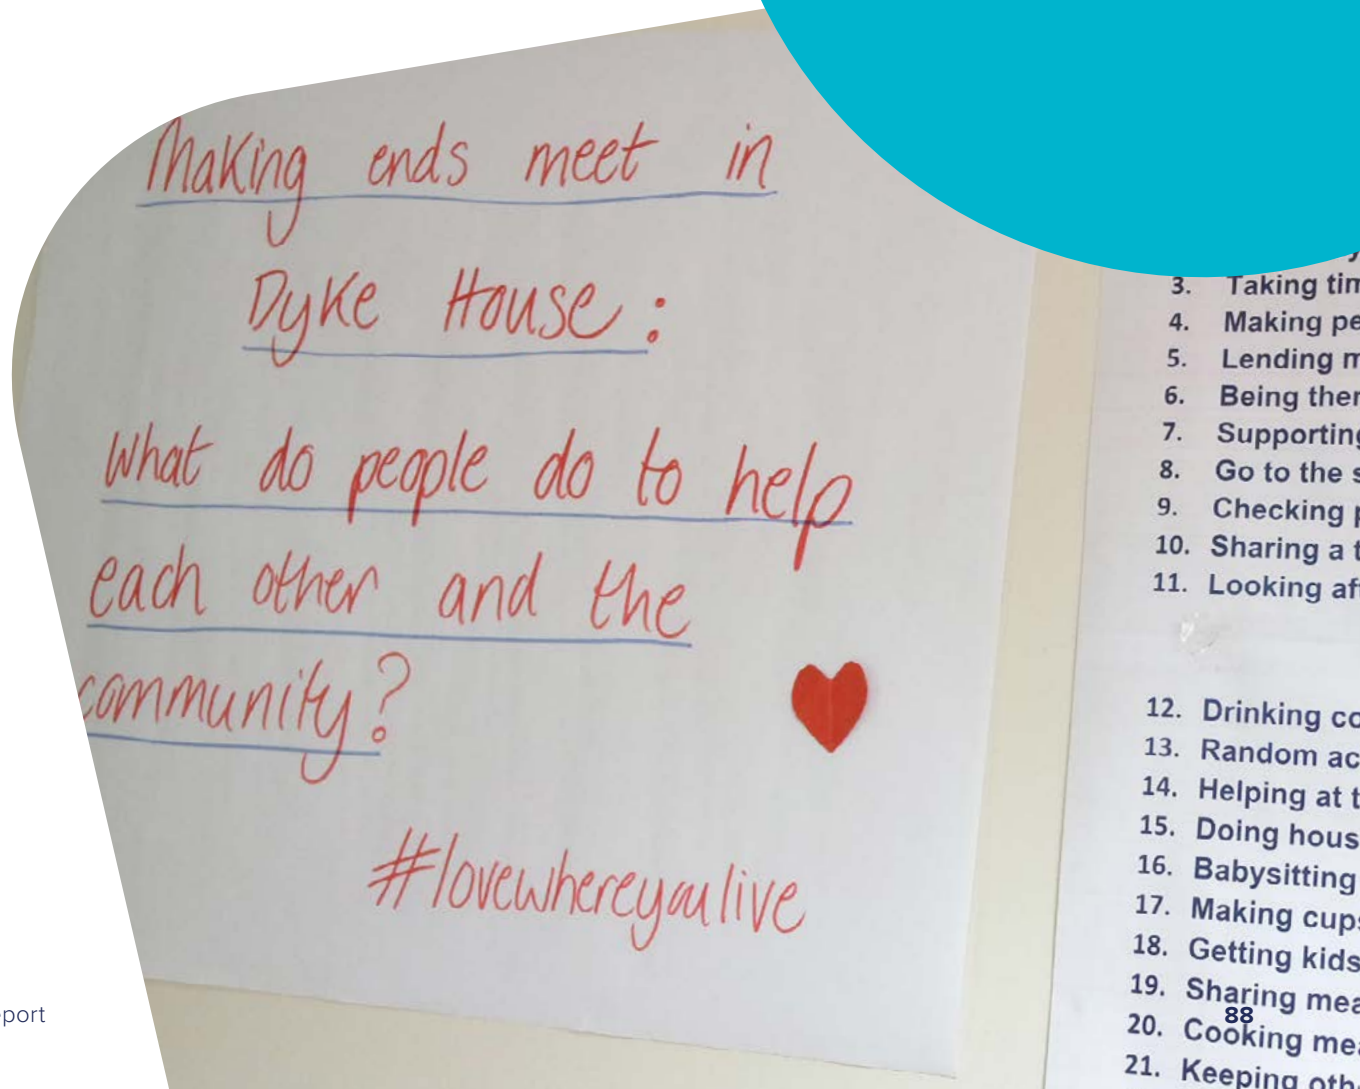 Making ends meet in
Dyke House:
What do people do to help
each other and the
community?
#lovewhereyoulive
3. Taking
4. Making
5. Lending
6. Being
7. Supporting
8. Go to the
9. Checking
10. Sharing a
11. Looking
12. Drinking
13. Random
14. Helping at
15. Doing
16. Babysitting
17. Making
18. Getting kids
19. Sharing
20. Cooking
21. Keeping
88